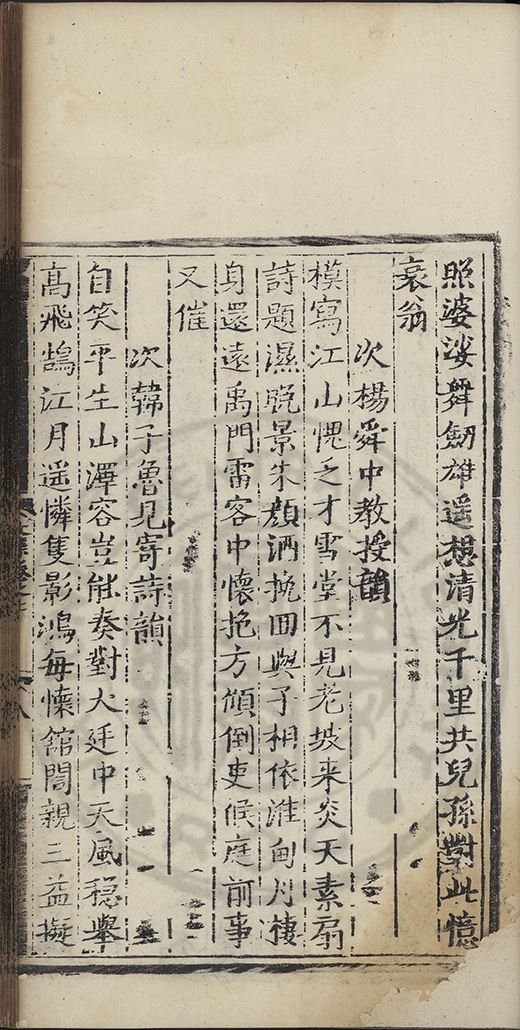 照婆娑舞劒雄遥想清光千里共兒孫對此憶
衰翁
次楊舜中教授韻
模寫江山愧乏才雪堂不見老坡來炎天素扇
詩題濕晚景朱顔酒挽囬與子相依淮甸月棲
身還遠禹門雷客中懷抱方傾倒吏候庭前事
又催
次韓子魯見寄詩韻
自笑平生山澤容豈能奏對大廷中天風穏舉
高飛鵠江月遥憐隻影鴻每懐舘閤親三益擬